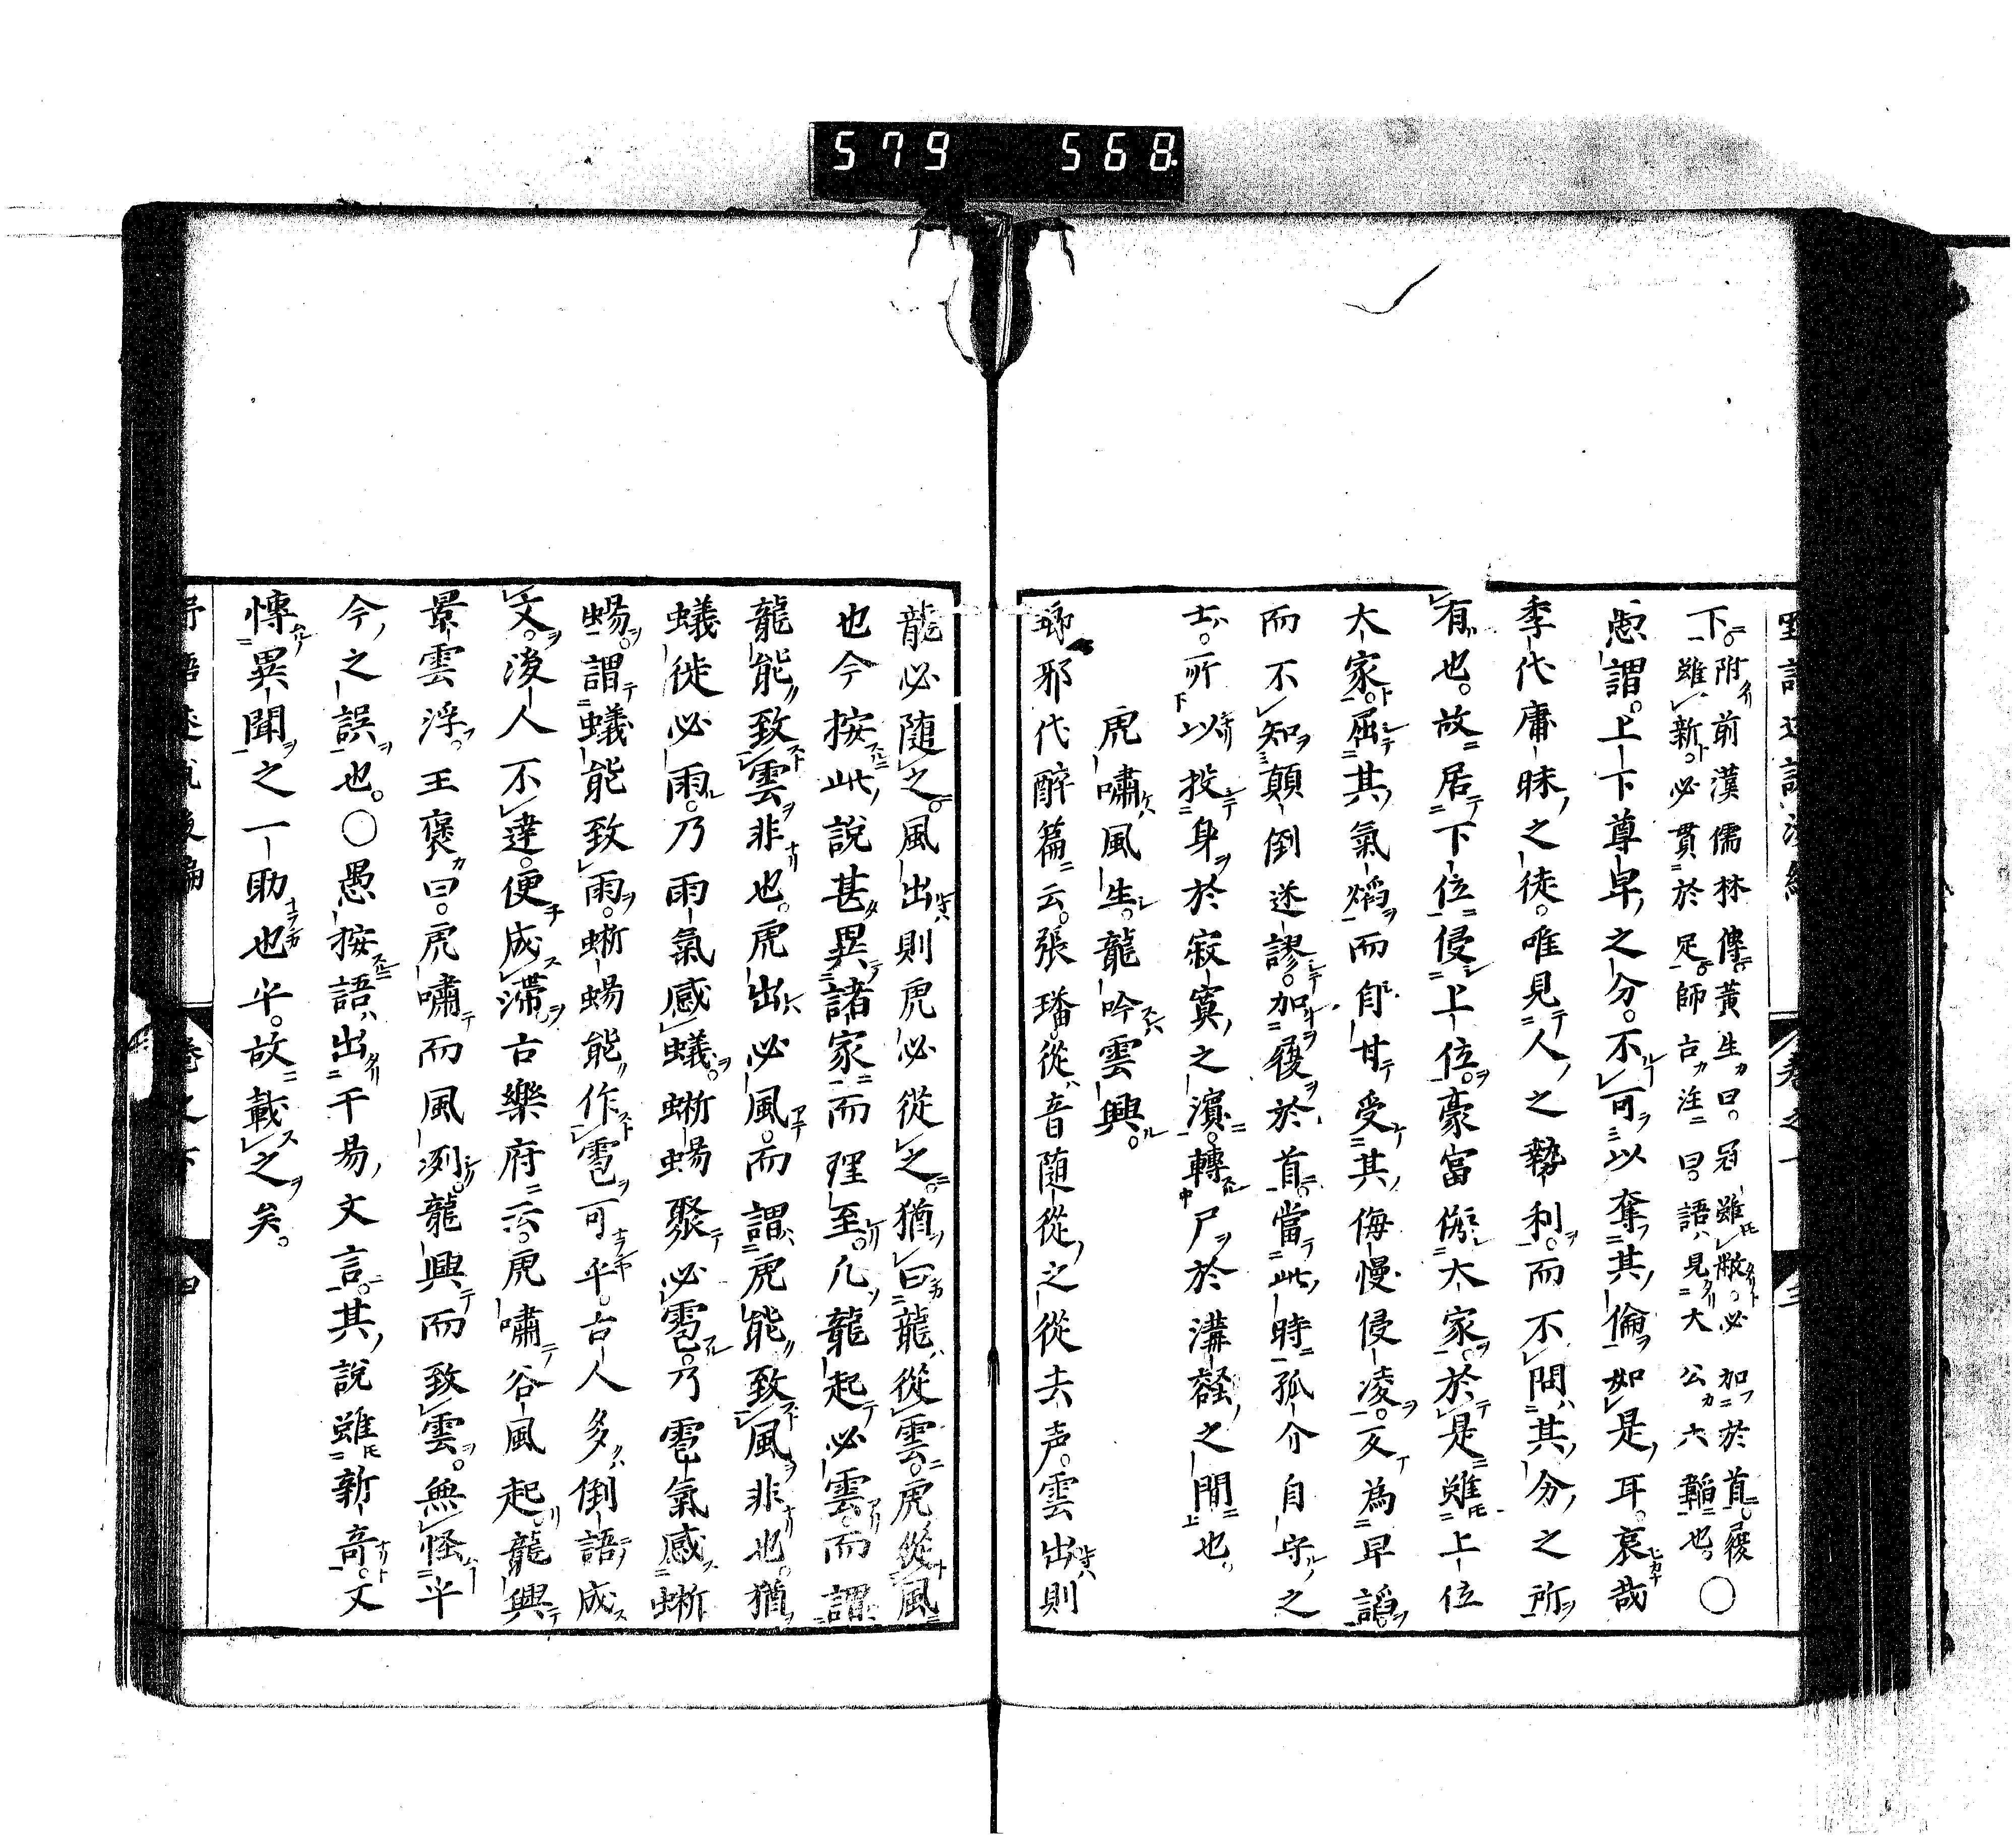 579 568.
下附前漢儒林傳黃生曰冠雖敝必加於首履
雖新必貫於足師古注曰語見大公六韜也○
愚謂上下尊卑之分不可以奪其倫如是耳哀哉
季代庸昧之徒唯見人之勢利而不問其分之所
有也故居下位侵上位豪富傲大家於是雖上位
大家屈其氣熖而自甘受其侮慢侵凌反為卑謟
而不知顛倒迷謬加履於首當此時孤介自守之
士所以投身於寂寞之濱轉尸於溝壑之間也
虎嘯風生龍吟雲興
瑯邪代醉篇云張璠從音隨從之從去声雲出則
龍必随之風出則虎必從之猶曰龍從雲虎從風
也今按此說甚異諸家而理至凢龍起必雲而謂
龍能致雲非也虎出必風而謂虎能致風非也猶
蟻徙必雨乃雨氣感蟻蜥蜴聚必雹乃雹氣感蜥
蜴謂蟻能致雨蜥蜴能作雹可乎古人多倒語成
文後人不達便成滯古樂府云虎嘯谷風起龍興
景雲浮王褒曰虎嘯而風洌龍興而致雲無怪乎
今之誤也○愚按語出于易文言其說雖新奇又
慱異聞之一助也乎故載之矣